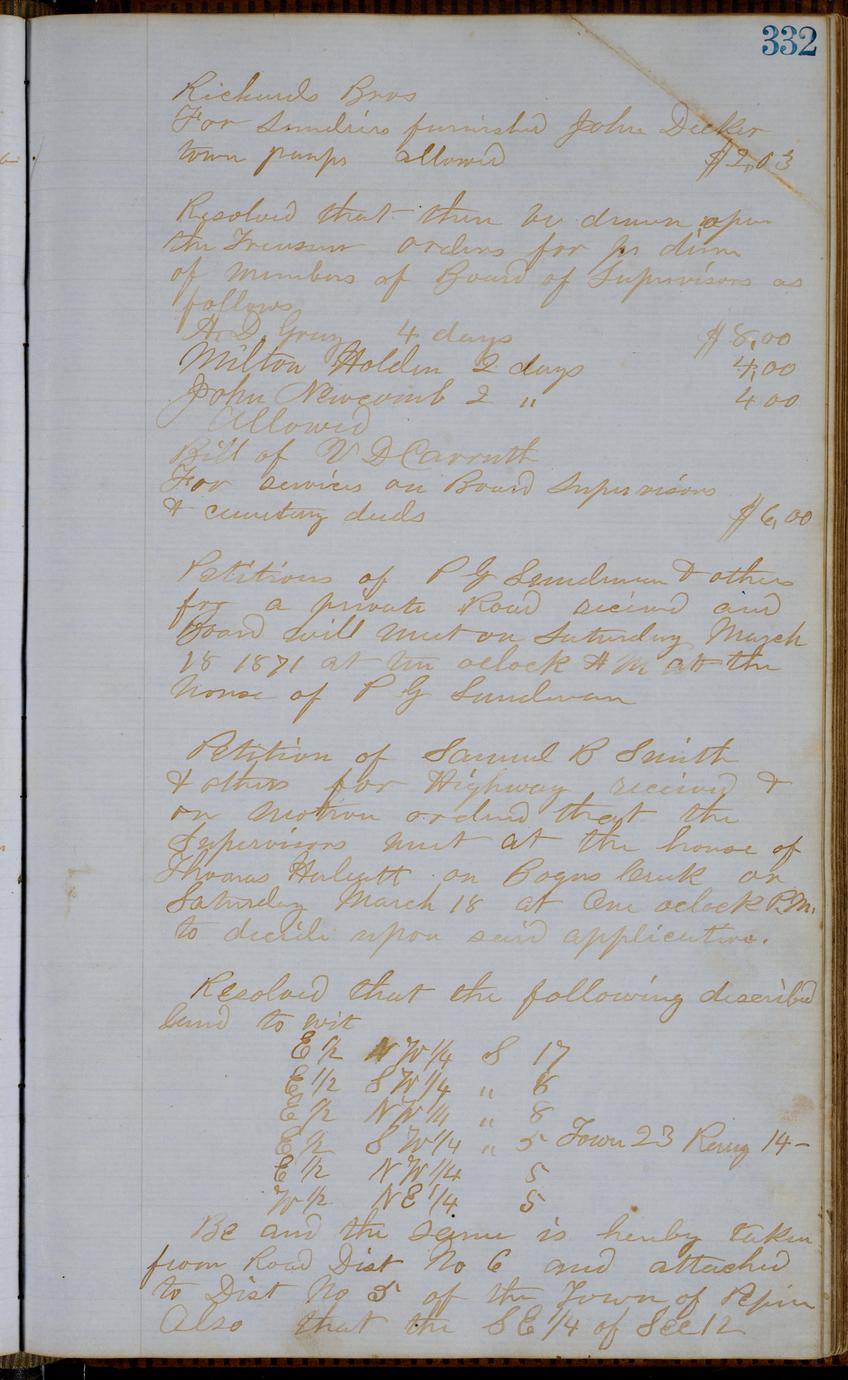 332
Richards Bros
For Sundries furnished John Decker
town paups allowed $2.03
Resolved that there be drawn upon
the Treasurer orders for per diem
of members of Board of Supervisors as
follows
A. D. Gray 4 days $8.00
Milton Holden 2 days 4.00
John Newcomb 2 " 4 00
Allowed
Bill of V D Carruth
For services on Board Supervisors
& cemetery deeds $6.00
Petitions of P G Sandman & others
for a private Road recieved and
Board will meet on Saturday March
18 1871 at ten oclock A M at the
house of P G Sandman
Petition of Samuel B Smith
& others for Highway received &
on motion ordered that the
Supervisors meet at the house of
Thomas Hulcutt on Bogus Creek on
Saturday March 18 at One oclock P.M.
to decide upon said application.
Resolved that the following described
land to wit
E 1/2 N W 1/4 S 17
E 1/2 S W 1/4 " 8
E 1/2 N W 1/4 " 8
E 1/2 S W 1/4 " 5 Town 23 Rang 14 -
E 1/2 N W 1/4 5
W 1/2 N E 1/4 5
Be and the same is hereby taken
from Road Dist No 6 and attached
to Dist No 5 of the Town of Pepin
Also that the S E 1/4 of Sec 12